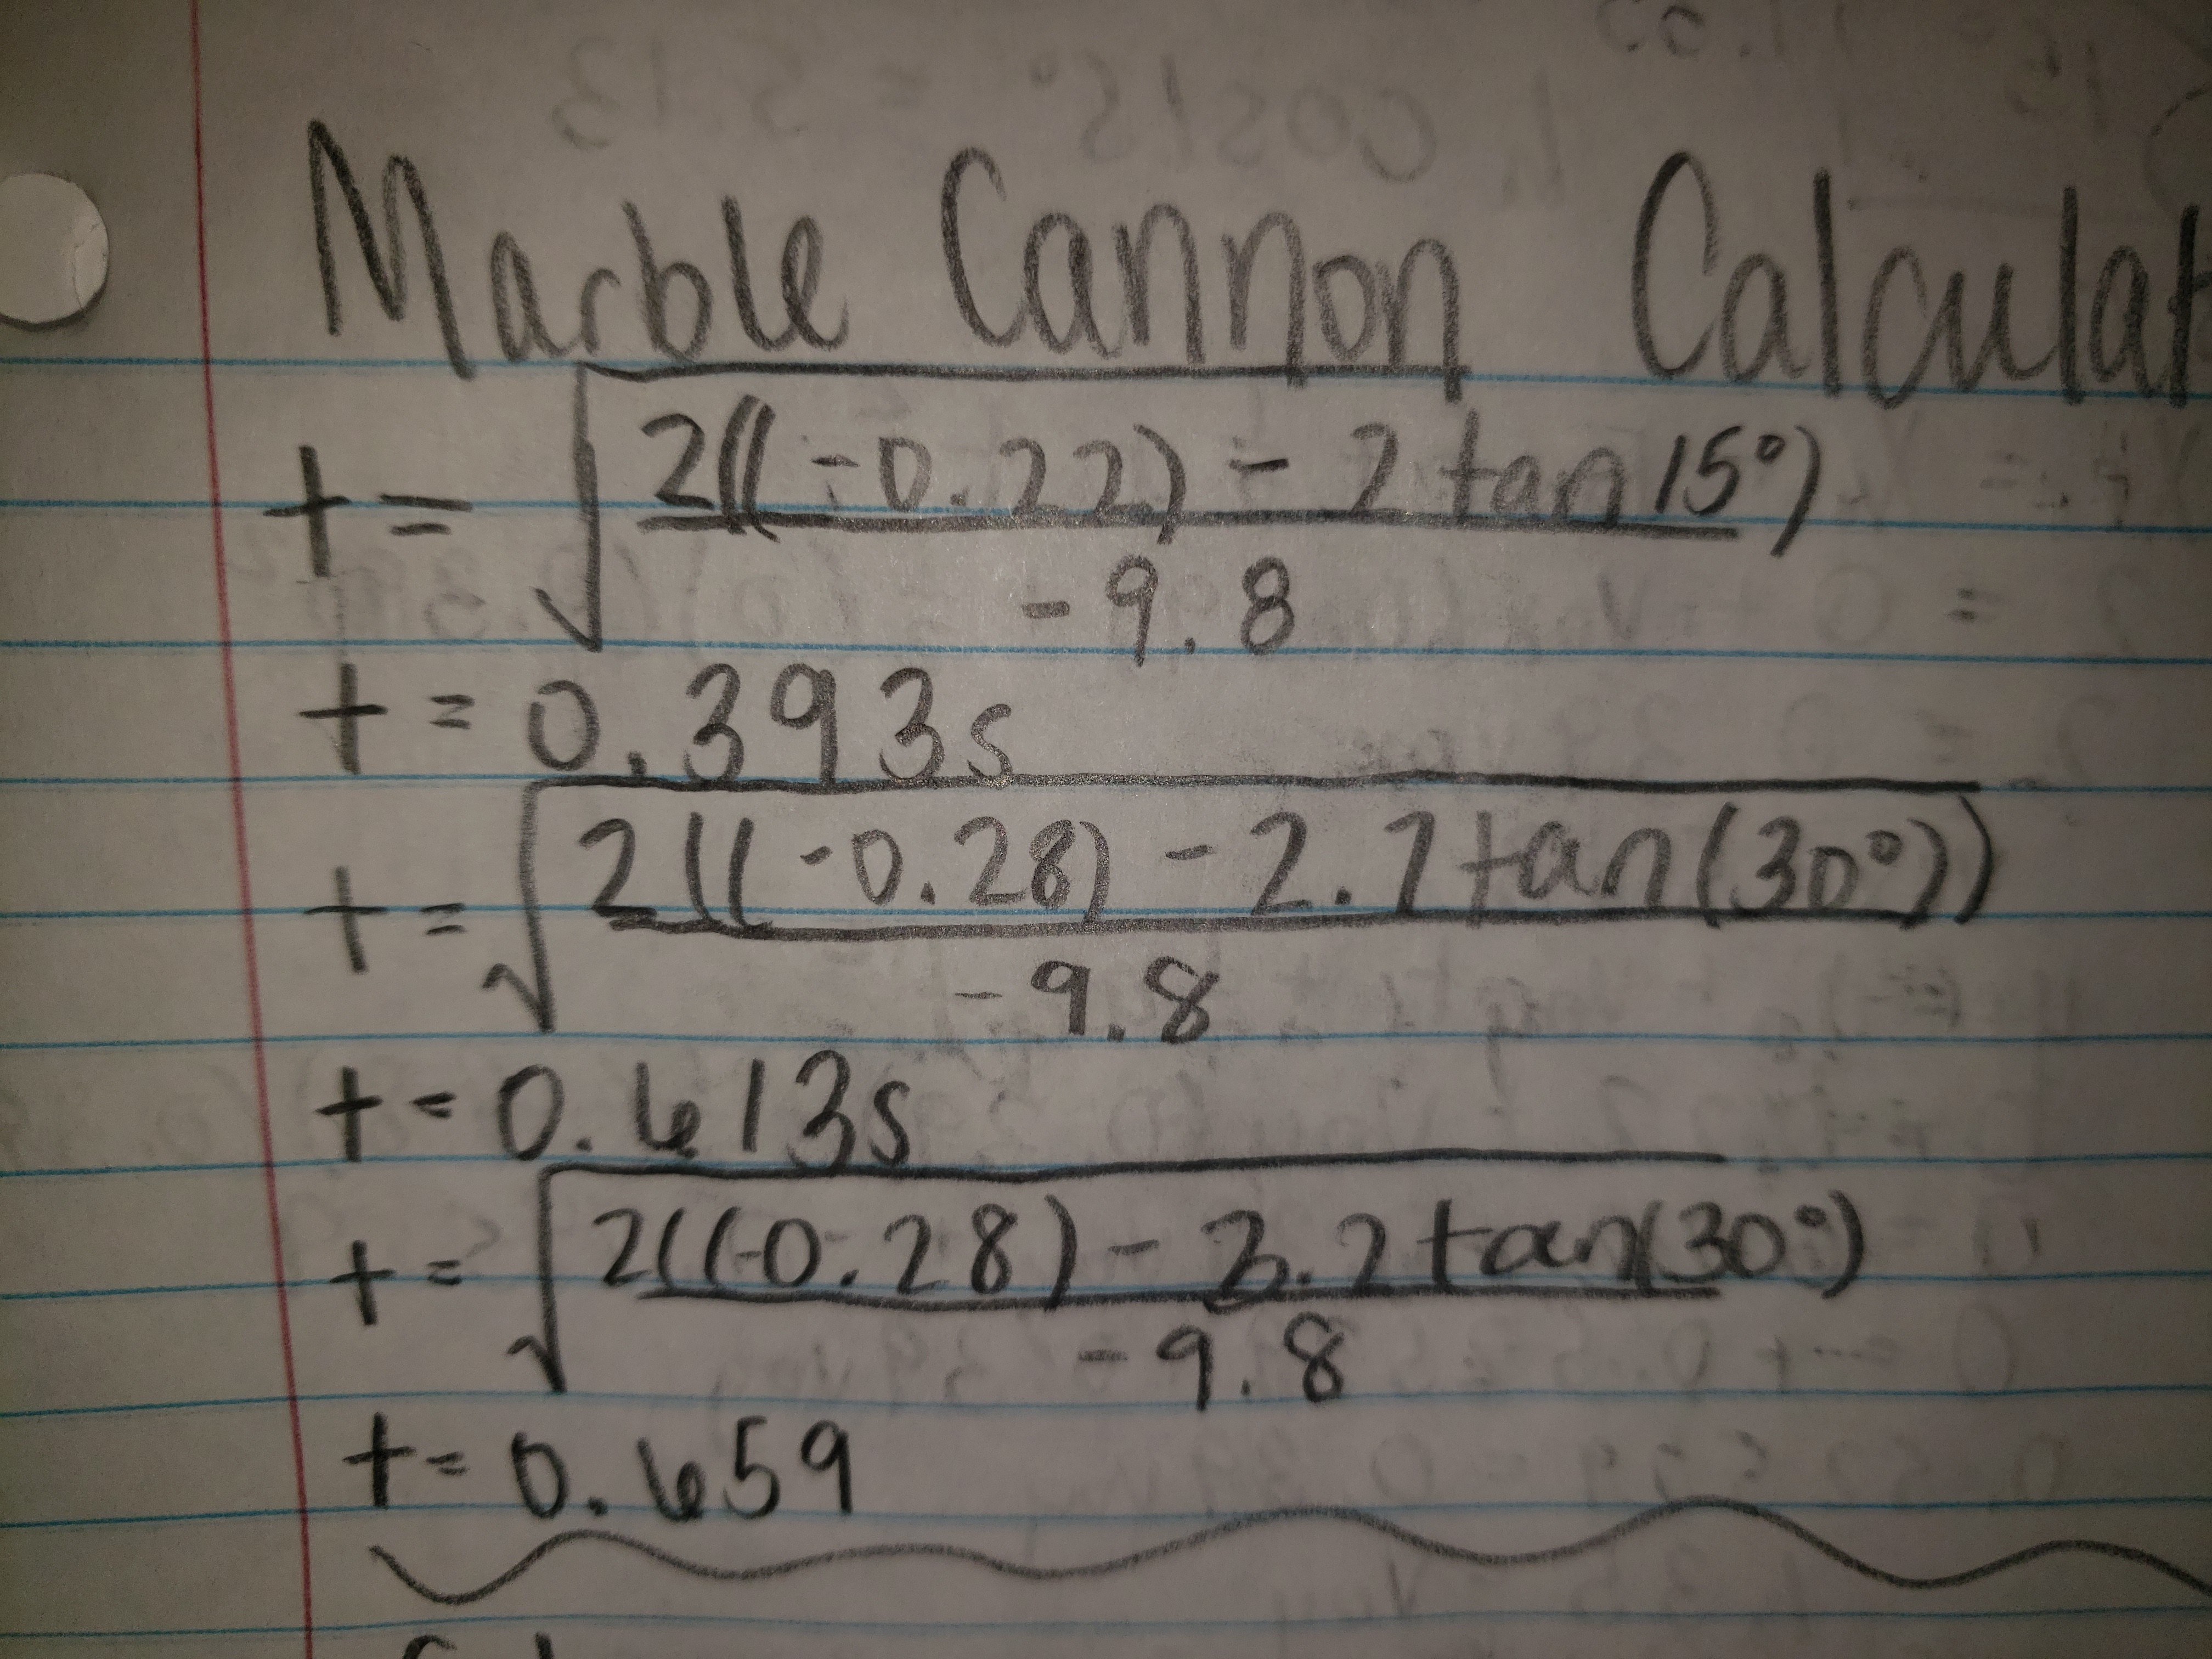 Marble Cannon Calculat
t = √(2((-0.22) - 2 tan 15°)
-9.8
t = 0.393s
t = √(2((-0.28) - 2.7 tan(30°))
-9.8
t = 0.613s
t = √2((-0.28) - 3.2 tan(30°)
-9.8
t = 0.659